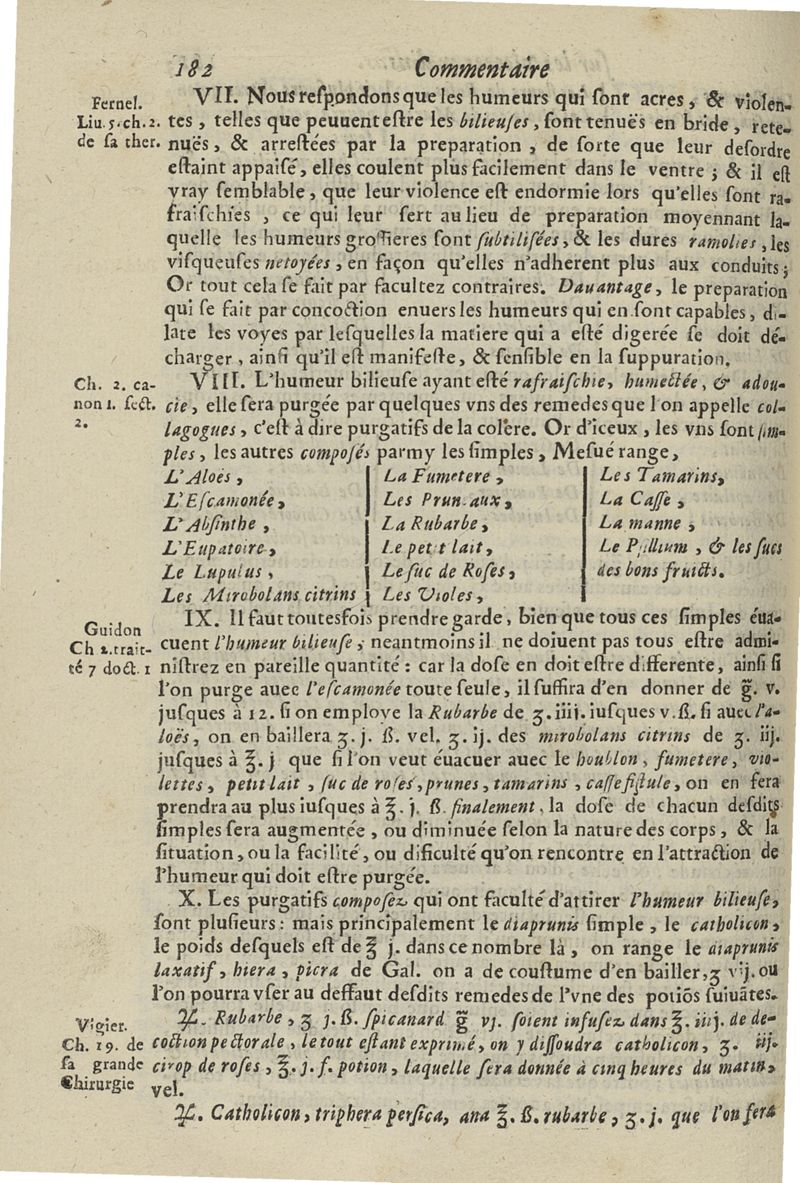 182 Commentaire
Fernel.
Liu. 5. ch. 2.
de sa ther.
VII. Nous respondons que les humeurs qui sont acres, & violen-
tes, telles que peuuent estre les bilieuses, sont tenuës en bride, rete-
nuës, & arrestées par la preparation, de sorte que leur desordre
estaint appaisé, elles coulent plus facilement dans le ventre; & il est
vray semblable, que leur violence est endormie lors qu'elles sont ra-
fraischies, ce qui leur sert au lieu de preparation moyennant la-
quelle les humeurs grossieres sont subtilisées, & les dures ramolies, les
visqueuses netoyées, en façon qu'elles n'adherent plus aux conduits;
Or tout cela se fait par facultez contraires. Dauantage, le preparation
qui se fait par concoction enuers les humeurs qui en sont capables, di-
late les voyes par lesquelles la matiere qui a esté digerée se doit dé-
charger, ainsi qu'il est manifeste, & sensible en la suppuration.
Ch. 2. ca-
non 1. sect.
2.
VIII. L'humeur bilieuse ayant esté rafraischie, humectée, & adou-
cie, elle sera purgée par quelques vns des remedes que l'on appelle col-
lagogues, c'est à dire purgatifs de la colere. Or d'iceux, les vns sont sim-
ples, les autres composés parmy les simples, Mesué range,
L'Aloës, | La Fumetere, | Les Tamarins,
L'Escamonée, | Les Prunaux, | La Casse,
L'Absinthe, | La Rubarbe, | La manne,
L'Eupatoire, | Le petit lait, | Le Psillium, & les sucs
Le Lupulus, | Le suc de Roses, | des bons fruicts.
Les Mirobolans citrins | Les Violes, |
Guidon
Ch 1. trait-
té 7 doct. 1
IX. Il faut toutesfois prendre garde, bien que tous ces simples éua-
cuent l'humeur bilieuse, neantmoins il ne doiuent pas tous estre admi-
nistrez en pareille quantité: car la dose en doit estre differente, ainsi si
l'on purge auec l'escamonée toute seule, il suffira d'en donner de g̃. v.
jusques à 12. si on employe la Rubarbe de ʒ. iiij. iusques v. ß. si auec l'a-
loës, on en baillera ʒ. j. ß. vel. ʒ. ij. des mirobolans citrins de ʒ. iij.
jusques à ℥. j que si l'on veut éuacuer auec le houblon, fumetere, vio-
lettes, petit lait, suc de roses, prunes, tamarins, casse fistule, on en fera
prendra au plus iusques à ℥. j. ß. finalement, la dose de chacun desdits
simples sera augmentée, ou diminuée selon la nature des corps, & la
situation, ou la facilité, ou dificulté qu'on rencontre en l'attraction de
l'humeur qui doit estre purgée.
X. Les purgatifs composez qui ont faculté d'attirer l'humeur bilieuse,
sont plusieurs: mais principalement le diaprunis simple, le catholicon,
le poids desquels est de ℥ j. dans ce nombre là, on range le diaprunis
laxatif, hiera, picra de Gal. on a de coustume d'en bailler, ʒ vij. ou
l'on pourra vser au deffaut desdits remedes de l'vne des potiõs suiuãtes.
Vigier.
Ch. 19. de
sa grande
Chirurgie
♃. Rubarbe, ʒ j. ß. spicanard g̃ vj. soient infusez dans ℥. iiij. de de-
coction pectorale, le tout estant exprimé, on y dissoudra catholicon, ʒ. iij.
cirop de roses, ℥. j. f. potion, laquelle sera donnée à cinq heures du matin,
vel.
♃. Catholicon, triphera persica, ana ℥. ß. rubarbe, ʒ. j. que l'on fera